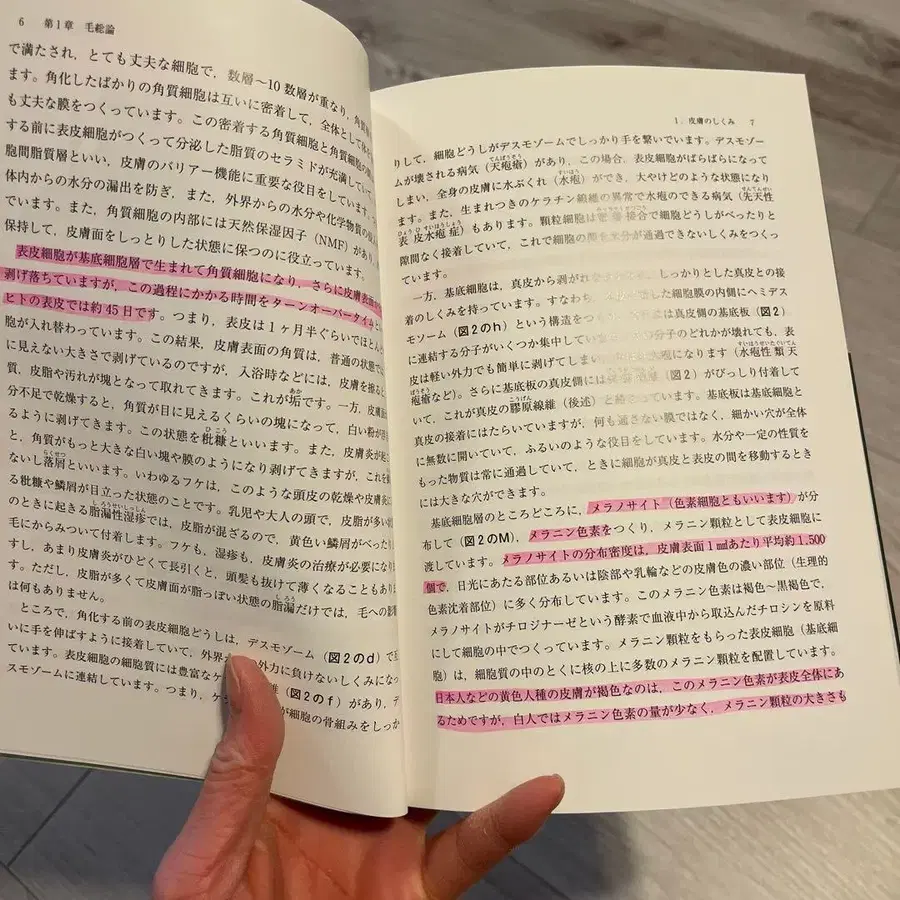 6 第1章 毛総論
で満たされ,とても丈夫な細胞で,数層〜10数層が重なり,角質
ます。角化したばかりの角質細胞は互いに密着して,全体として
も丈夫な膜をつくっています。この密着する角質細胞と角質細胞の
する前に表皮細胞がつくって分泌した脂質のセラミドが充満してい
胞間脂質層といい,皮膚のバリアー機能に重要な役目をしています。
体内からの水分の漏出を防ぎ,また,外界からの水分や化学物質の
でいます。また,角質細胞の内部には天然保湿因子(NMF)があり,
保持して,皮膚面をしっとりした状態に保つのに役立っています。
表皮細胞が基底細胞層で生まれて角質細胞になり,さらに皮膚表面
剥げ落ちていますが,この過程にかかる時間をターンオーバータイム
ヒトの表皮では約45日です。つまり,表皮は1ヶ月半ぐらいでほとん
胞が入れ替わっています。この結果,皮膚表面の角質は,普通の状態で
に見えない大きさで剥げているのですが,入浴時などには,皮膚を擦る
質,皮脂や汚れが塊となって取れてきます。これが垢です。一方,皮膚
分不足で乾燥すると,角質が目に見えるくらいの塊になって,白い粉が
るように剥げてきます。この状態を粃糠といいます。また,皮膚炎が
と,角質がもっと大きな白い塊や膜のようになり剥げてきますが,これを
ないし落屑といいます。いわゆるフケは,このような頭皮の乾燥や皮膚炎に
る粃糠や鱗屑が目立った状態のことです。乳児や大人の頭で,皮脂が多い
のときに起きる脂漏性湿疹では,皮脂が混ざるので,黄色い鱗屑がべったり
毛にからみついて付着します。フケも,湿疹も,皮膚炎の治療が必要になり
すし,あまり皮膚炎がひどくて長引くと,頭髪も抜けて薄くなることもあり
す。ただし,皮脂が多くて皮膚面が脂っぽい状態の脂漏だけでは,毛への影
は何もありません。
ところで,角化する前の表皮細胞どうしは,デスモゾーム(図2のd)で
いに手を伸ばすように接着していて,外界 の外力に負けないしくみになっ
ています。表皮細胞の細胞質には豊富なケ 維(図2のf)があり,デ
スモゾームに連結しています。つまり,ケラ が細胞の骨組みをしっか
1.皮膚のしくみ 7
りして,細胞どうしがデスモゾームでしっかり手を繋いでいます。デスモゾー
ムが壊される病気(天疱瘡)があり,この場合,表皮細胞がばらばらになって
しまい,全身の皮膚に水ぶくれ(水疱)ができ,大やけどのような状態になり
ます。また,生まれつきのケラチン線維の異常で水疱のできる病気(先天性
表皮水疱症)もあります。顆粒細胞は密着接合で細胞どうしがべったりと
隙間なく接着していて,これで細胞の間を水分が通過できないしくみをつくっ
ています。
一方,基底細胞は,真皮から剥がれ しっかりした真皮との接
着のしくみを持っています。すなわち, した細胞膜の内側にヘミデス
モゾーム(図2のh)という構造をつ は真皮側の基底板(図2)
に連結する分子がいくつか集中してい 分子のどれかが壊れても,表
皮は軽い外力でも簡単に剥げてしまい になります(水疱性類天
疱瘡など)。さらに基底板の真皮側には (図2)がびっしり付着して
いて,これが真皮の膠原線維(後述)と ています。基底板は基底細胞と
真皮の接着にはたらいていますが,何も通さない膜ではなく,細かい穴が全体
に無数に開いていて,ふるいのような役目をしています。水分や一定の性質を
もった物質は常に通過していて,ときに細胞が真皮と表皮の間を移動するとき
には大きな穴ができます。
基底細胞層のところどころに,メラノサイト(色素細胞ともいいます)が分
布して(図2のM),メラニン色素をつくり,メラニン顆粒として表皮細胞に
渡しています。メラノサイトの分布密度は,皮膚表面1㎟あたり平均約1,500
個で,日光にあたる部位あるいは陰部や乳輪などの皮膚色の濃い部位(生理的
色素沈着部位)に多く分布しています。このメラニン色素は褐色〜黒褐色で,
メラノサイトがチロジナーゼという酵素で血液中から取込んだチロシンを原料
にして細胞の中でつくっています。メラニン顆粒をもらった表皮細胞(基底細
胞)は,細胞質の中のとくに核の上に多数のメラニン顆粒を配置しています。
日本人などの黄色人種の皮膚が褐色なのは,このメラニン色素が表皮全体にあ
るためですが,白人ではメラニン色素の量が少なく,メラニン顆粒の大きさも